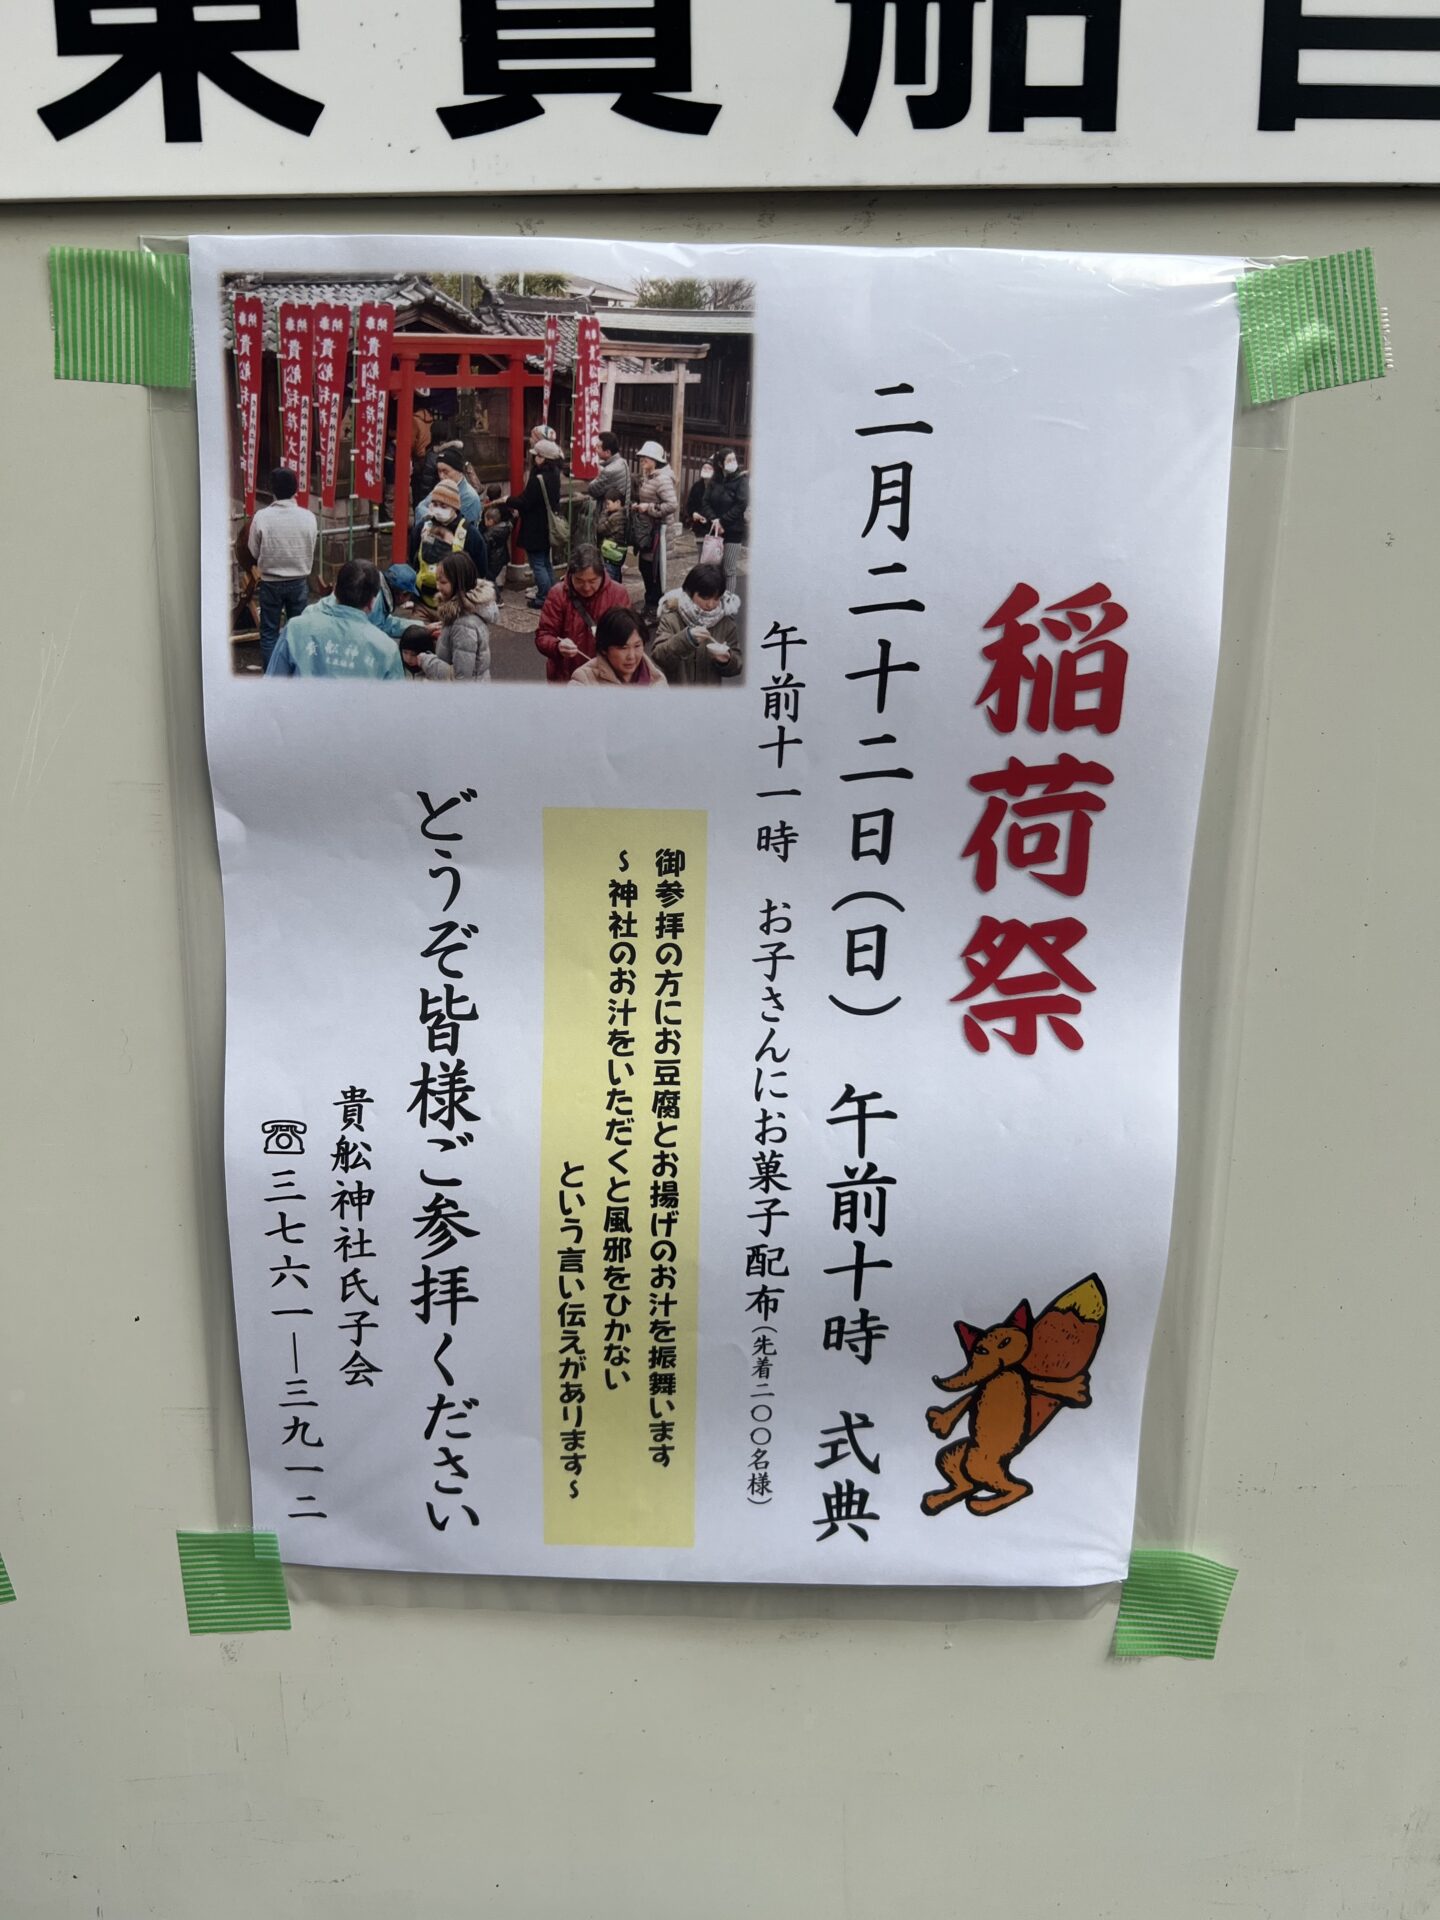 東貴船自
稲荷祭
二月二十二日(日) 午前十時 式典
午前十一時 お子さんにお菓子配布(先着二〇〇名様)
御参拝の方にお豆腐とお揚げのお汁を振舞います
~神社のお汁をいただくと風邪をひかない
という言い伝えがあります~
どうぞ皆様ご参拝ください
貴舩神社氏子会
☎三七六一―三九一二
貴舩稲荷大明神
貴舩稲荷大明神
貴舩神社